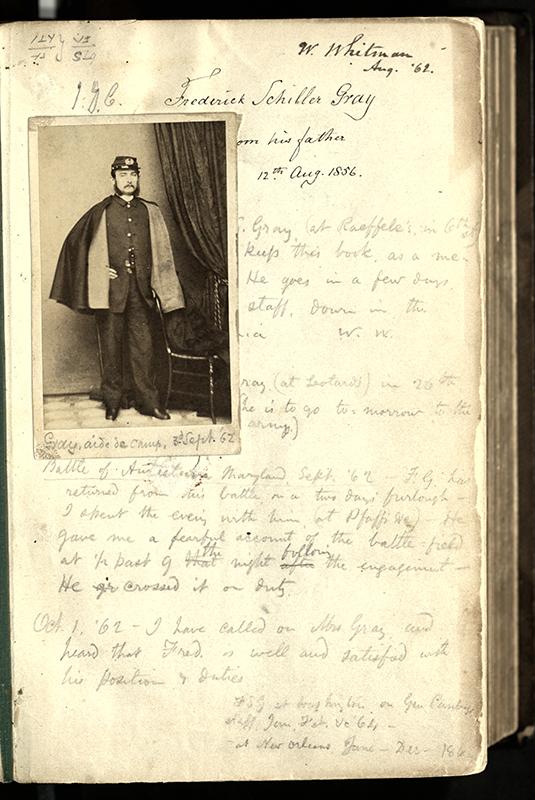 W. Whitman
Aug. '62.
J.G.C.
Frederick Schiller Gray
om his father
12th Aug. 1856.
. Gray (at Raeffele's, in 6th st
keep this book, as a me-
He goes in a few days,
staff, down in the
W. W.
ray, (at Leotards) in 26th
he is to go to-morrow to the
army.)
Gray, aide de camp, Sept. '62
Battle of Antietam Maryland, Sept. '62 – F.G. has
returned from this battle, on a two days furlough –
I spent the eveing with him (at Pfaff's &c) – He
gave me a fearful account of the battle-field
at ½ past 9 that the night after following the engagement –
He crossed it on duty.
Oct. 1, '62 – I have called on Mrs Gray, and
heard that Fred. is well and satisfied with
his position & duties
F S G at Washington on Gen Canby's
staff, Jan. Feb. &c '64 –
– at New Orleans June – Dec – 186